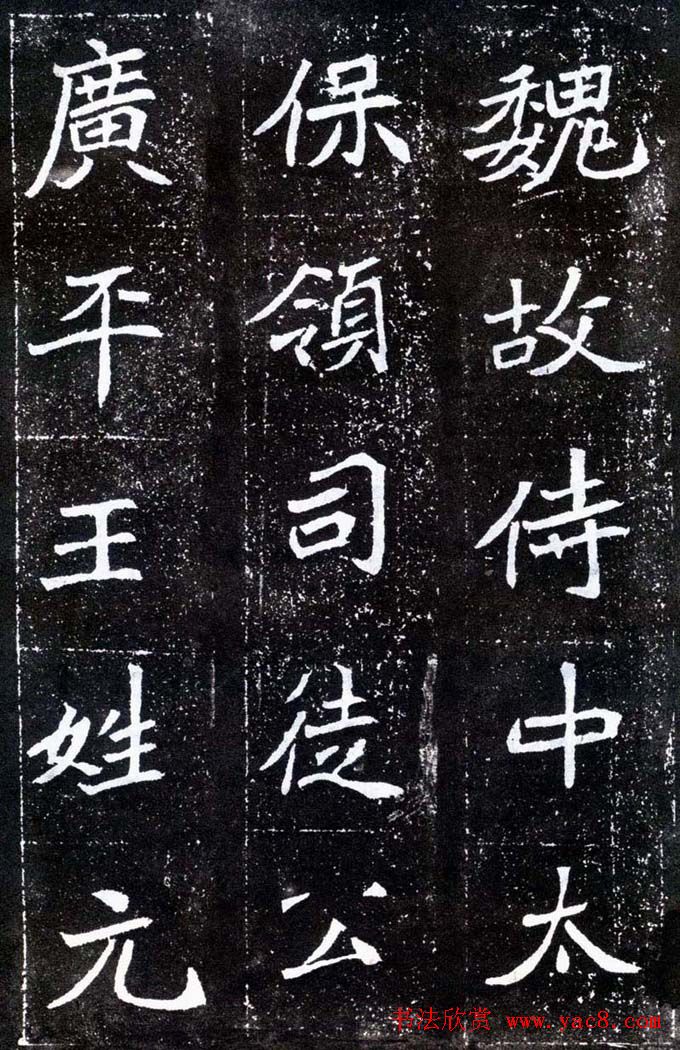 魏故侍中太
保領司徒公
廣平王姓元
书法欣赏 www.yac8.com